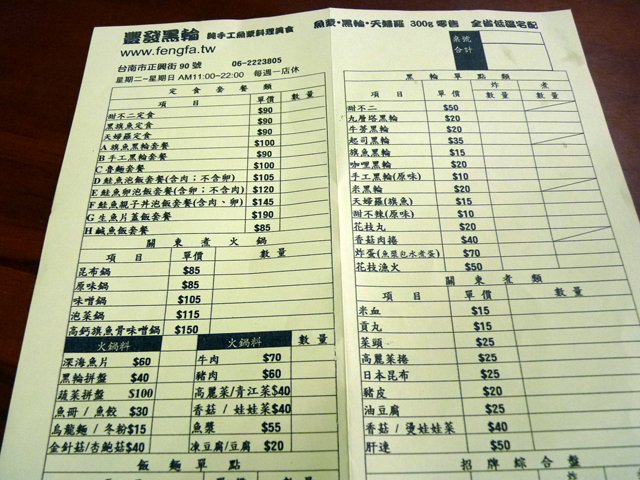 豐發黑輪 純手工魚漿料理美食 魚漿‧黑輪‧天婦羅 300g 零售 全省低溫宅配
www.fengfa.tw
台南市正興街 90 號 06-2223805
星期二~星期日 AM11:00~22:00 每週一店休
桌號
合計
定食套餐類
項目 單價 數量
甜不二定食 $90
黑旗魚定食 $90
天婦羅定食 $90
A 旗魚黑輪套餐 $100
B 手工黑輪套餐 $90
C 魯麵套餐 $100
D 鮭魚泡飯套餐(含肉；不含卵) $105
E 鮭魚卵泡飯套餐(含卵；不含肉) $120
F 鮭魚親子丼泡飯套餐(含肉、卵) $145
G 生魚片蓋飯套餐 $190
H 鹹魚飯套餐 $85
關東煮火鍋
項目 單價 數量
昆布鍋 $85
原味鍋 $85
味噌鍋 $105
泡菜鍋 $115
高鈣旗魚骨味噌鍋 $150
火鍋料 火鍋料 數量
深海魚片 $60 牛肉 $70
黑輪拼盤 $40 豬肉 $60
蔬菜拼盤 $100 高麗菜/青江菜 $40
魚冊 / 魚餃 $30 香菇 / 娃娃菜 $40
烏龍麵 / 冬粉 $15 魚漿 $55
金針菇/杏鮑菇 $40 凍豆腐/豆腐 $20
飯麵單點
黑輪單點類
項目 單價 炸 煮
數量 數量
甜不二 $50
九層塔黑輪 $20
牛蒡黑輪 $20
起司黑輪 $35
旗魚黑輪 $15
咖哩黑輪 $20
手工黑輪(原味) $10
米黑輪 $20
天婦羅(旗魚) $15
甜不辣(原味) $10
花枝丸 $20
香菇肉捲 $40
炸蛋(魚漿包水煮蛋) $70
花枝漁火 $50
關東煮類
項目 單價 數量
米血 $15
貢丸 $15
菜頭 $25
高麗菜捲 $25
日本昆布 $25
豬皮 $20
油豆腐 $25
香菇 / 燙娃娃菜 $40
肝連 $50
招牌綜合盤